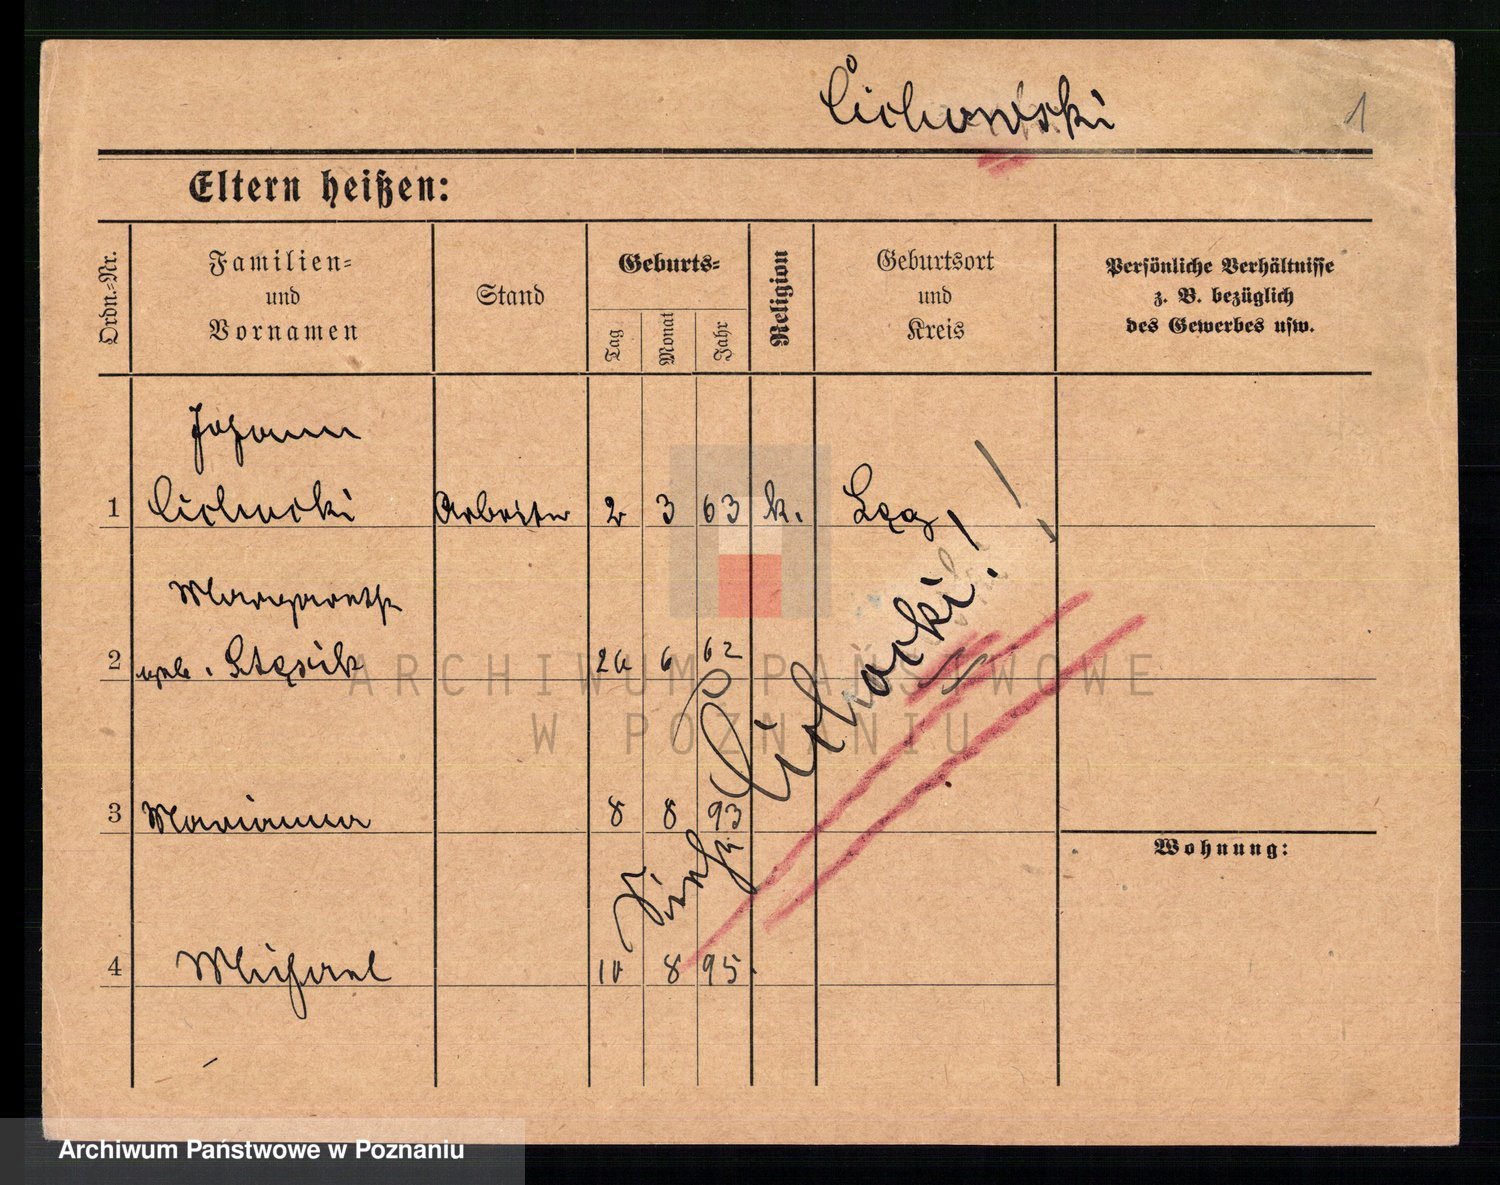 Cichowski
1
Eltern heißen:
Ordn.-Nr.
Familien- und Vornamen
Stand
Geburts-
Tag
Monat
Jahr
Religion
Geburtsort und Kreis
Persönliche Verhältnisse z. B. bezüglich des Gewerbes usw.
Johann
1 Cichocki Arbeiter 2 3 63 k.
Margareth
2 geb. 6 62
ARCHIWUM PAŃSTWOWE
W POZNANIU
3 Marianna 8 8 93
Wohnung:
Siehe Cichocki!
4 Michael 10 8 95.
Archiwum Państwowe w Poznaniu